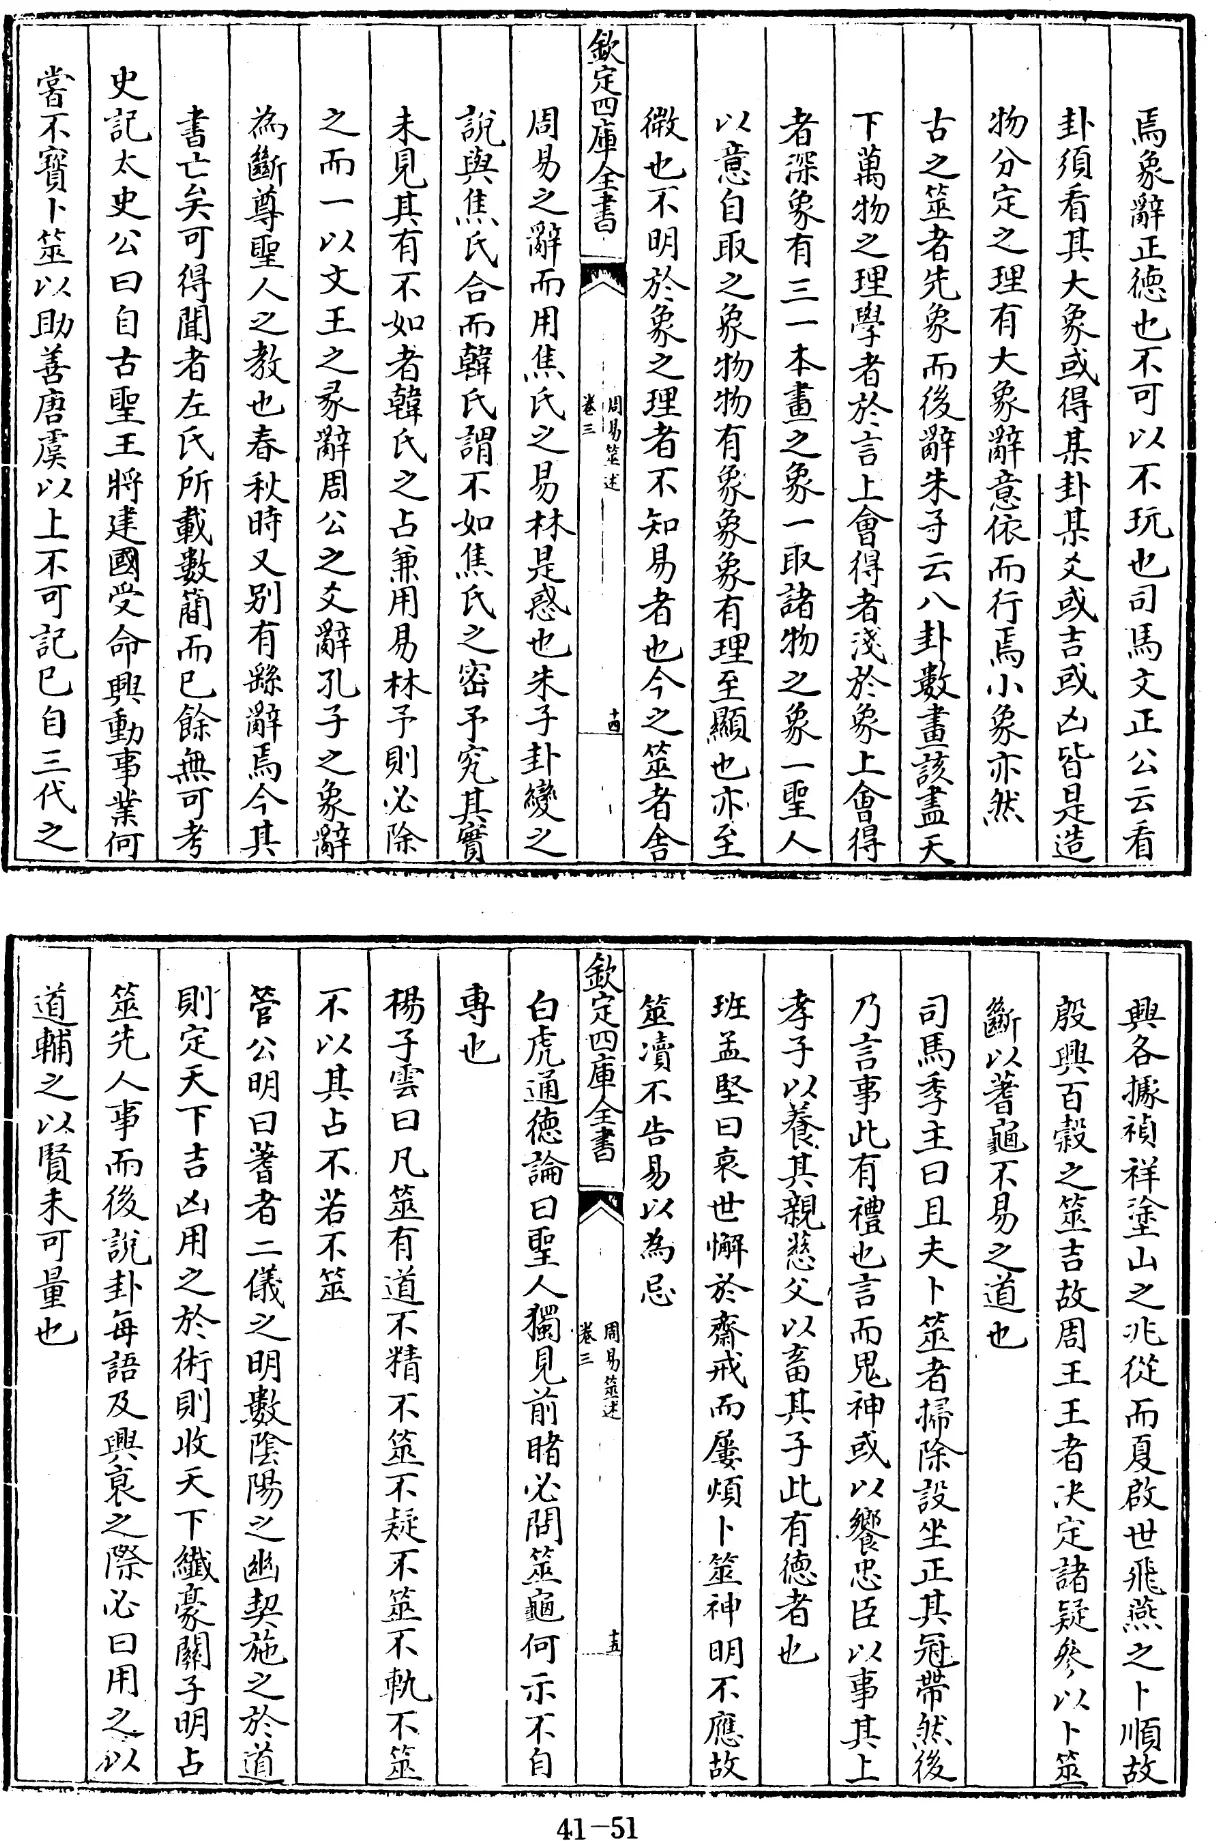 焉象辭正德也不可以不玩也司馬文正公云看
卦須看其大象或得某卦某爻或吉或凶皆是造
物分定之理有大象辭意依而行焉小象亦然
古之筮者先象而後辭朱子云八卦數畫該盡天
下萬物之理學者於言上會得者淺於象上會得
者深象有三一本畫之象一取諸物之象一聖人
以意自取之象物物有象象象有理至顯也亦至
微也不明於象之理者不知易者也今之筮者舍
欽定四庫全書
周易筮述
卷三
十四
周易之辭而用焦氏之易林是惑也朱子卦變之
說與焦氏合而韓氏謂不如焦氏之密予究其實
未見其有不如者韓氏之占兼用易林予則必除
之而一以文王之彖辭周公之爻辭孔子之象辭
為斷尊聖人之教也春秋時又别有繇辭焉今其
書亡矣可得聞者左氏所載數簡而已餘無可考
史記太史公曰自古聖王將建國受命興動事業何
嘗不寳卜筮以助善唐虞以上不可記已自三代之
興各據禎祥塗山之兆從而夏啟世飛燕之卜順故
殷興百穀之筮吉故周王王者决定諸疑參以卜筮
斷以蓍龜不易之道也
司馬季主曰且夫卜筮者掃除設坐正其冠帶然後
乃言事此有禮也言而鬼神或以饗忠臣以事其上
孝子以養其親慈父以畜其子此有德者也
班孟堅曰衰世懈於齋戒而屢煩卜筮神明不應故
筮瀆不告易以為忌
欽定四庫全書
周易筮述
卷三
十五
白虎通德論曰聖人獨見前睹必問筮龜何示不自
專也
楊子雲曰凡筮有道不精不筮不疑不筮不軌不筮
不以其占不若不筮
管公明曰蓍者二儀之明數陰陽之幽契施之於道
則定天下吉凶用之於術則收天下纖豪關子明占
筮先人事而後說卦每語及興衰之際必曰用之以
道輔之以賢未可量也
41-51